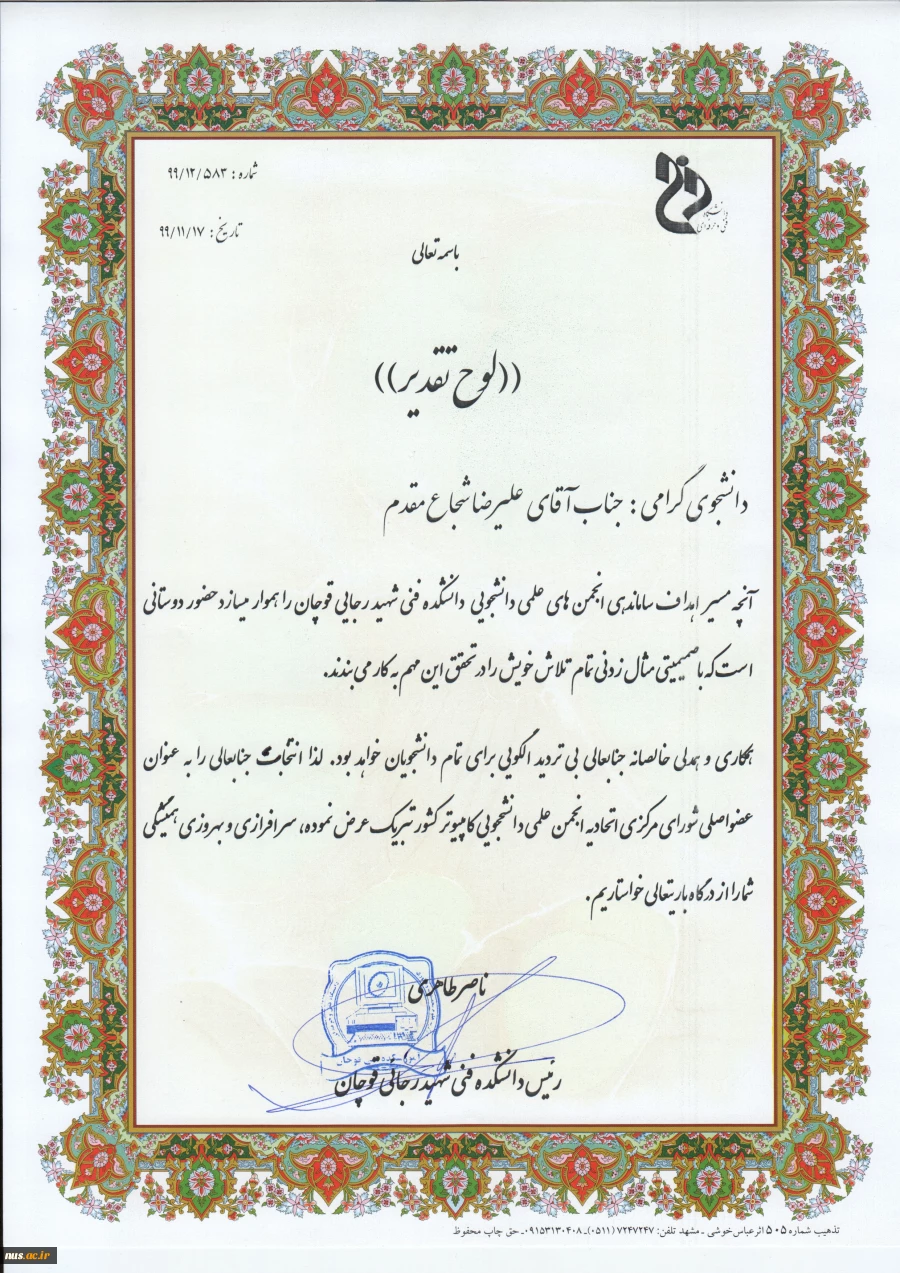 شماره: ۹۹/۱۲/۵۸۳
دانشگاه
فنی و حرفه‌ای
تاریخ: ۹۹/۱۱/۱۷
باسمه تعالی
((لوح تقدیر))
دانشجوی گرامی: جناب آقای علیرضا شجاع مقدم
آنچه مسیر اهداف ساماندهی انجمن های علمی دانشجویی دانشکده فنی شهید رجایی قوچان را هموار میسازد حضور دوستانی
است که با صمیمیتی مثال زدنی تمام تلاش خویش را در تحقق این مهم به کار می بندند.
همکاری و همدلی خالصانه جنابعالی بی تردید الگویی برای تمام دانشجویان خواهد بود. لذا جنابعالی را به عنوان
عضو اصلی شورای مرکزی اتحادیه انجمن علمی دانشجویی کامپیوتر کشور تبریک عرض نموده، سرافرازی و بهروزی همیشگی
شما را از درگاه باریتعالی خواستاریم.
ناصر طاهری
رئیس دانشکده فنی شهید رجائی قوچان
تذهیب شماره ۵۰۵ اثر عباس خوشی - مشهد تلفن: ۷۲۴۷۲۴۷ (۰۵۱۱) - ۰۹۱۵۳۱۳۰۴۰۸ - حق چاپ محفوظ
nus.ac.ir